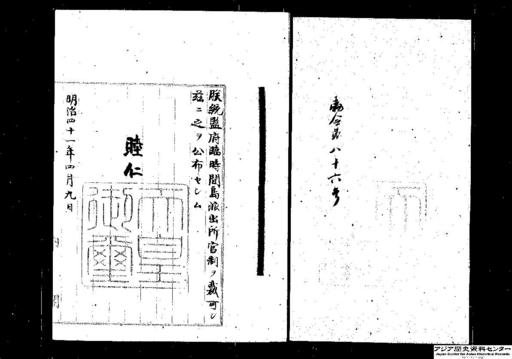 勅令第八十六号
朕統監府臨時間島派出所官制ヲ裁可シ
茲ニ之ヲ公布セシム
睦仁
天皇御璽
明治四十一年四月九日
アジア歴史資料センター
Japan Center for Asian Historical Records